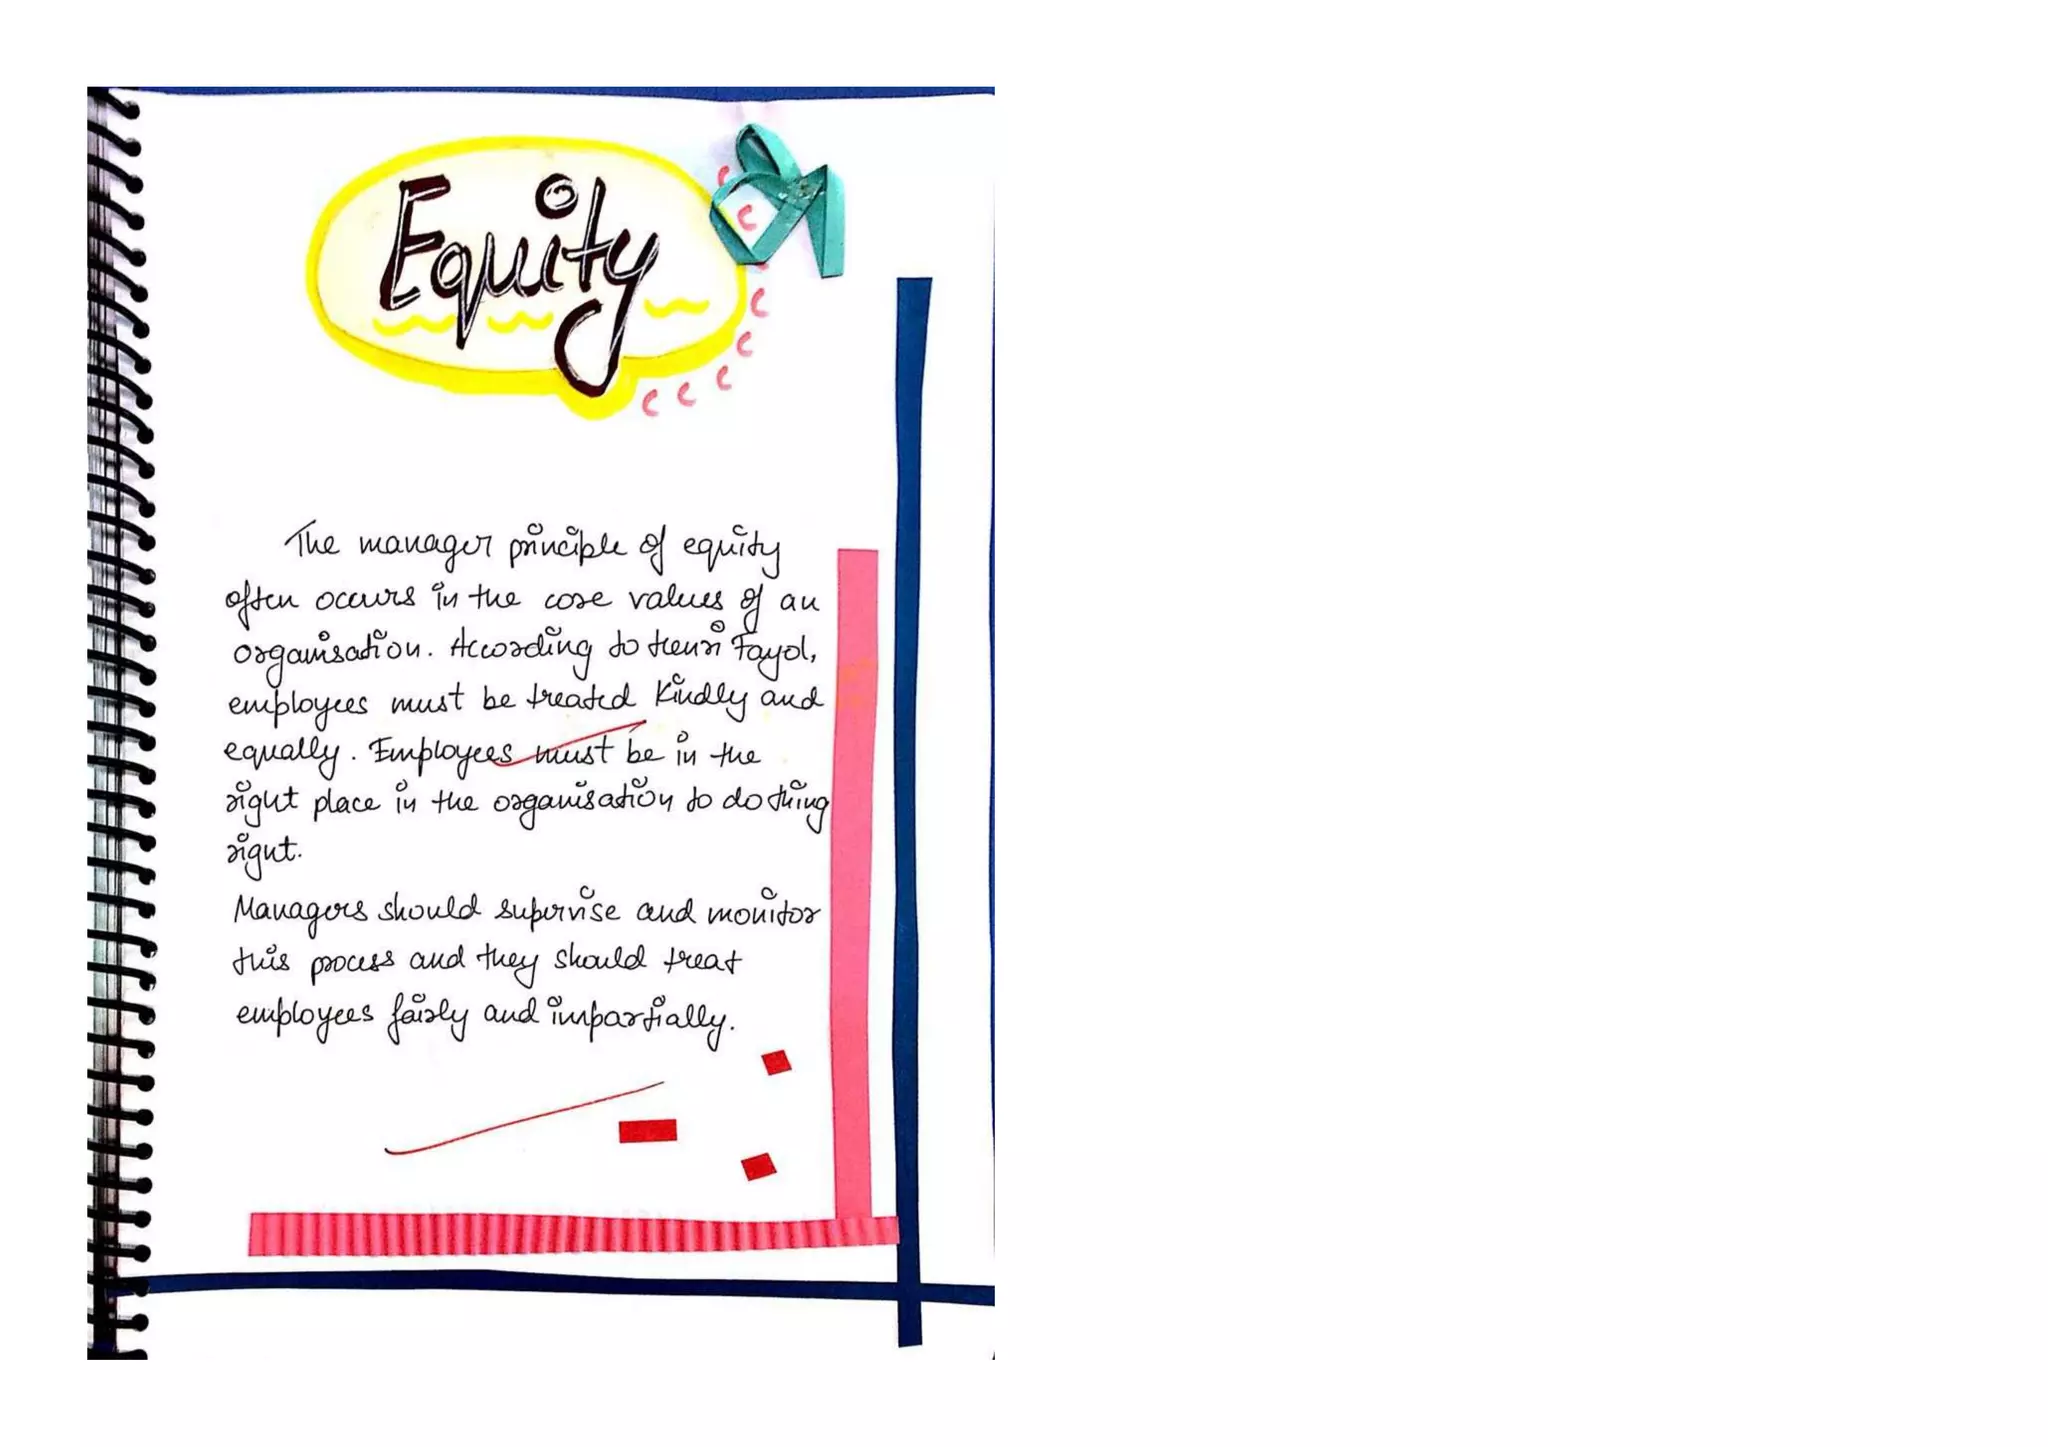 Equity
The manager principle of equity
often occurs in the core values of an
organisation. According to Henri Fayol,
employees must be treated kindly and
equally. Employees must be in the
right place in the organisation to do thing
right.
Managers should supervise and monitor
this process and they should treat
employees fairly and impartially.